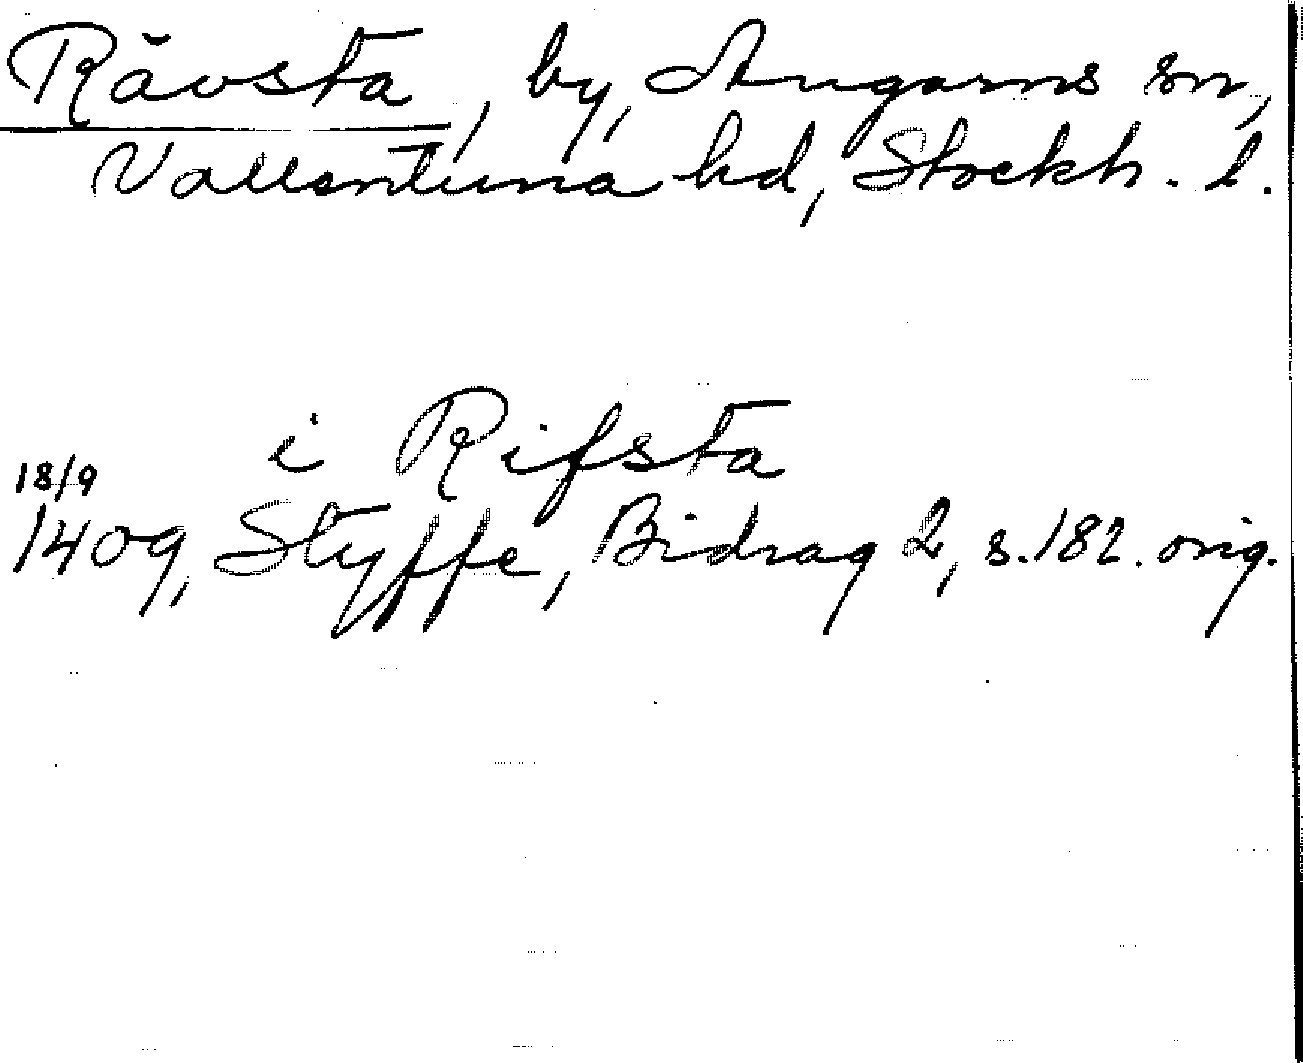 Rävsta, by, Angarns sn,
Vallentuna hd, Stockh. l.
i Rifsta
18/9
1409, Styffe, Bidrag 2, s. 182. orig.